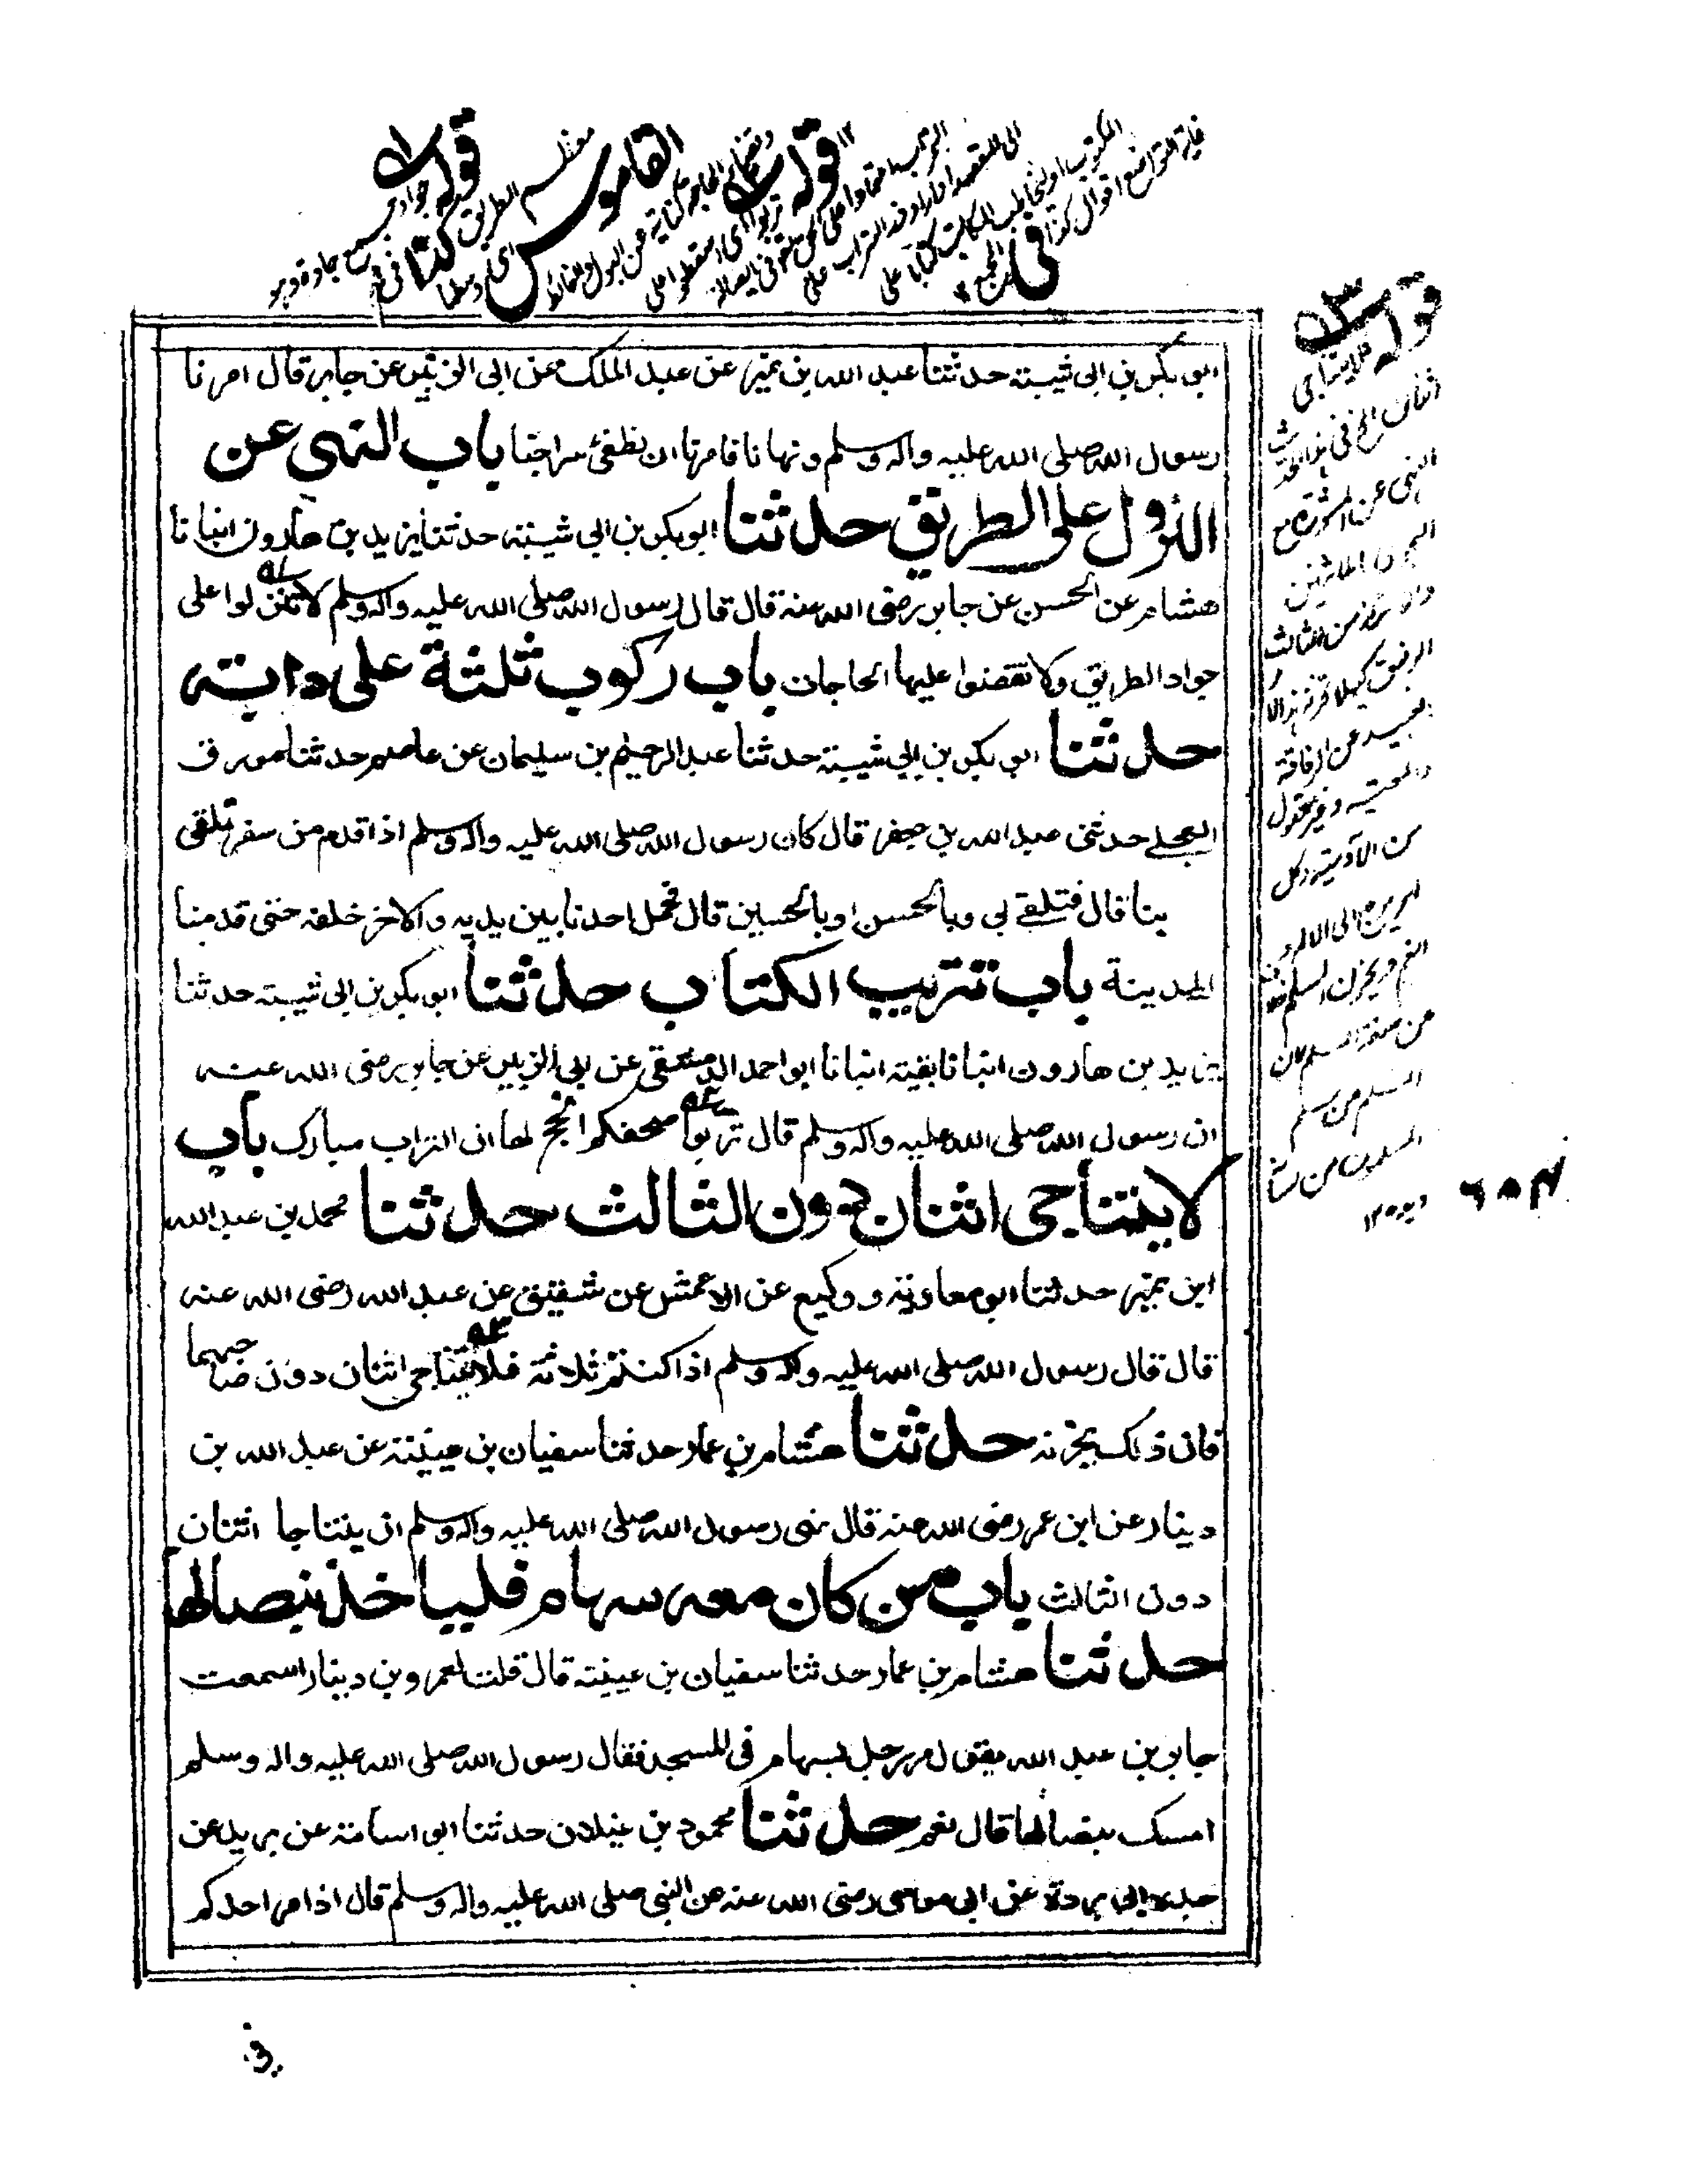 قوله جواد جمع جادة وهو
معظم الطريق كذا في
القاموس
قوله تربوا اي اسقطوا على
التراب اعتمادا على الحق سبحانه في ايصاله
الى المقصد او اراد ذر التراب على
المكتوب او ليخاطب الكاتب خطابا على
غاية التواضع اقوال كذا في
المجمع ١٢
ابو بكر بن ابى شيبة حدثنا عبد الله بن نمير عن عبد الملك عن ابى الزبير عن جابر قال امرنا
رسول الله صلى الله عليه واله وسلم ونهانا فامرنا ان نطفئ سراجنا باب النهى عن
النزول على الطريق حدثنا ابو بكر بن ابى شيبة حدثنا يزيد بن هارون انبانا
هشام عن الحسن عن جابر رضى الله عنه قال قال رسول الله صلى الله عليه واله وسلم لا تنزلوا على
جواد الطريق ولا تقضوا عليها الحاجات باب ركوب ثلثة على دابة
حدثنا ابو بكر بن ابي شيبة حدثنا عبد الرحيم بن سليمان عن عاصم حدثنا مورق
العجلے حدثنى عبد الله بن جعفر قال كان رسول الله صلى الله عليه واله وسلم اذا قدم من سفر تلقى
بنا قال فتلقے بى وبالحسن او بالحسين قال فحمل احدنا بين يديه والاخر خلفه حتى قدمنا
المدينة باب تتريب الكتاب حدثنا ابو بكر بن ابى شيبة حدثنا
يزيد بن هارون انبانا بقية انبانا ابو احمد الدمشقى عن ابى الزبير عن جابر رضى الله عنه
ان رسول الله صلى الله عليه واله وسلم قال تربوا صحفكم انجح لها ان التراب مبارك باب
لا يتناجى اثنان دون الثالث حدثنا محمد بن عبد الله
ابن نمير حدثنا ابو معاوية ووكيع عن الاعمش عن شقيق عن عبد الله رضى الله عنه
قال قال رسول الله صلى الله عليه واله وسلم اذا كنتم ثلاثة فلا يتناجى اثنان دون صاحبهما
فان ذلك يحزنه حدثنا هشام بن عمار حدثنا سفيان بن عيينة عن عبد الله بن
دينار عن ابن عمر رضى الله عنه قال نهى رسول الله صلى الله عليه واله وسلم ان يتناجا اثنان
دون الثالث باب من كان معه سهام فليأخذ بنصالها
حدثنا هشام بن عمار حدثنا سفيان بن عيينة قال قلت لعمرو بن دينار اسمعت
جابر بن عبد الله يقول مر رجل بسهام فى المسجد فقال رسول الله صلى الله عليه واله وسلم
امسك بنصالها قال نعم حدثنا محمود بن غيلان حدثنا ابو اسامة عن بريد عن
جده ابى بردة عن ابى موسى رضى الله عنه عن النبى صلى الله عليه واله وسلم قال اذا مر احدكم
قوله فلا يتناجى
اثنان الخ في هذا الحديث
النهي عن المشورة مع
من الثالث
الرفيق كيلا
عن الرفاقة
من الآدمية وكل